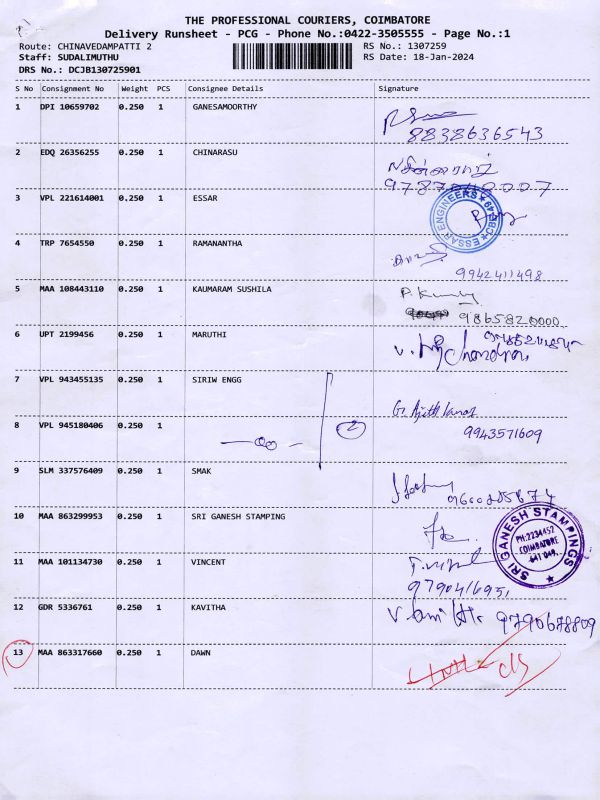 THE PROFESSIONAL COURIERS, COIMBATORE
Delivery Runsheet - PCG - Phone No.:0422-3505555 - Page No.:1
Route: CHINAVEDAMPATTI 2 RS No.: 1307259
Staff: SUDALIMUTHU RS Date: 18-Jan-2024
DRS No.: DCJB130725901
S No Consignment No Weight PCS Consignee Details Signature
1 DPI 10659702 0.250 1 GANESAMOORTHY
8838636543
2 EDQ 26356255 0.250 1 CHINARASU
3 VPL 221614001 0.250 1 ESSAR
ESSAR ENGINEERS
4 TRP 7654550 0.250 1 RAMANANTHA
9942411498
5 MAA 108443110 0.250 1 KAUMARAM SUSHILA
9865820000
6 UPT 2199456 0.250 1 MARUTHI
7 VPL 943455135 0.250 1 SIRIW ENGG
8 VPL 945180406 0.250 1
2
9943571609
9 SLM 337576409 0.250 1 SMAK
10 MAA 863299953 0.250 1 SRI GANESH STAMPING
SRI GANESH STAMPINGS
PH:2234452
COIMBATORE
641 049.
11 MAA 101134730 0.250 1 VINCENT
12 GDR 5336761 0.250 1 KAVITHA
9790678809
13 MAA 863317660 0.250 1 DAWN